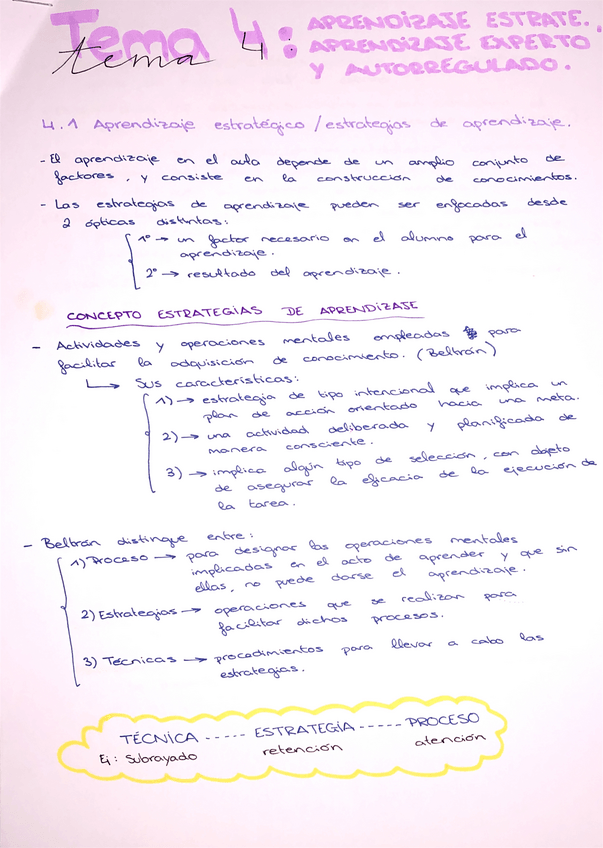 Tema 4: APRENDIZAJE ESTRATE.,
tema 4 : APRENDIZAJE EXPERTO
Y AUTORREGULADO.
4.1 Aprendizaje estratégico / estrategias de aprendizaje.
- El aprendizaje en el aula depende de un amplio conjunto de
factores, y consiste en la construcción de conocimientos.
- Las estrategias de aprendizaje pueden ser enfocadas desde
2 ópticas distintas:
1º → un factor necesario en el alumno para el
aprendizaje.
2º → resultado del aprendizaje.
CONCEPTO ESTRATEGIAS DE APRENDIZAJE
- Actividades y operaciones mentales empleadas para
facilitar la adquisición de conocimiento. (Beltrán)
↳ Sus características:
1) → estrategia de tipo intencional que implica un
plan de acción orientado hacia una meta.
2) → una actividad deliberada y planificada de
manera consciente.
3) → implica algún tipo de selección, con objeto
de asegurar la eficacia de la ejecución de
la tarea.
- Beltrán distingue entre:
1) Proceso → para designar las operaciones mentales
implicadas en el acto de aprender y que sin
ellas, no puede darse el aprendizaje.
2) Estrategias → operaciones que se realizan para
facilitar dichos procesos.
3) Técnicas → procedimientos para llevar a cabo las
estrategias.
TÉCNICA ----- ESTRATEGIA ----- PROCESO
Ej: Subrayado retención atención